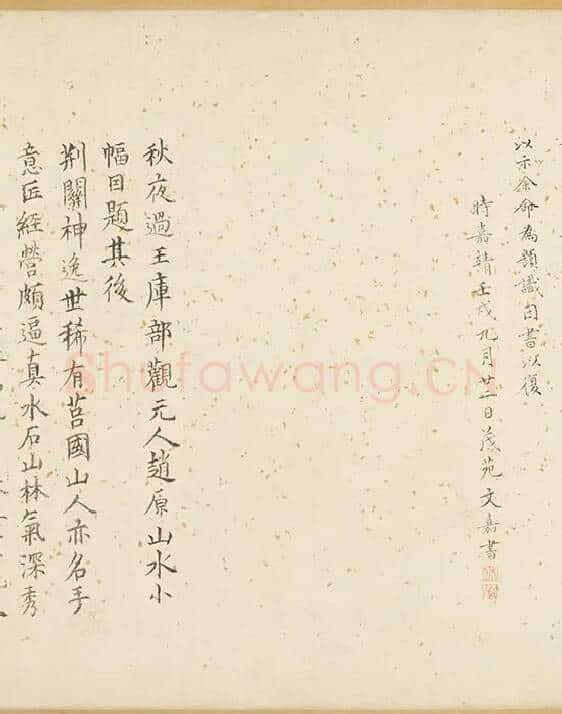 以示余命為題識因書以復
時嘉靖壬戌九月廿一日茂苑文嘉書
秋夜過王庫部觀元人趙原山水小
幅因題其後
荆關神逸世稀有莒國山人亦名手
意匠經營頗逼真水石山林氣深秀
Shufawang.CN